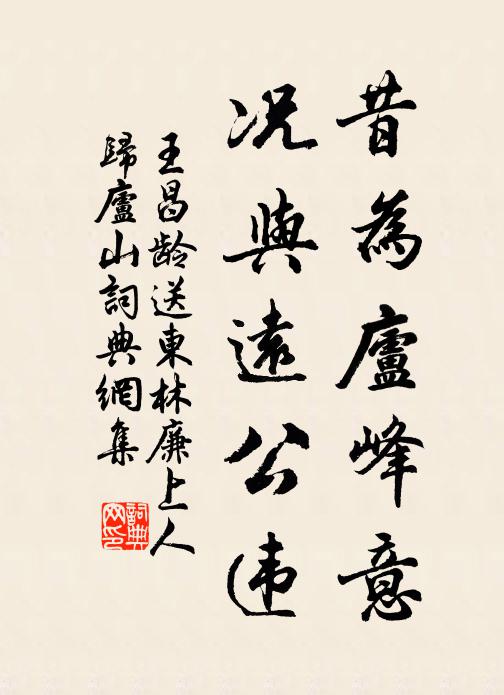 昔為廬峰意
况與遠公违
王昌龄送東林廉上人
歸廬山詞典網集
詞典网印